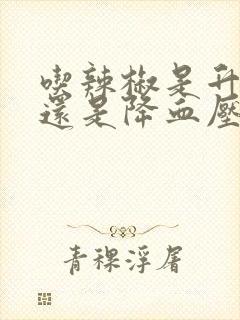 喫辣椒是升
還是降血壓
青稞浮屠